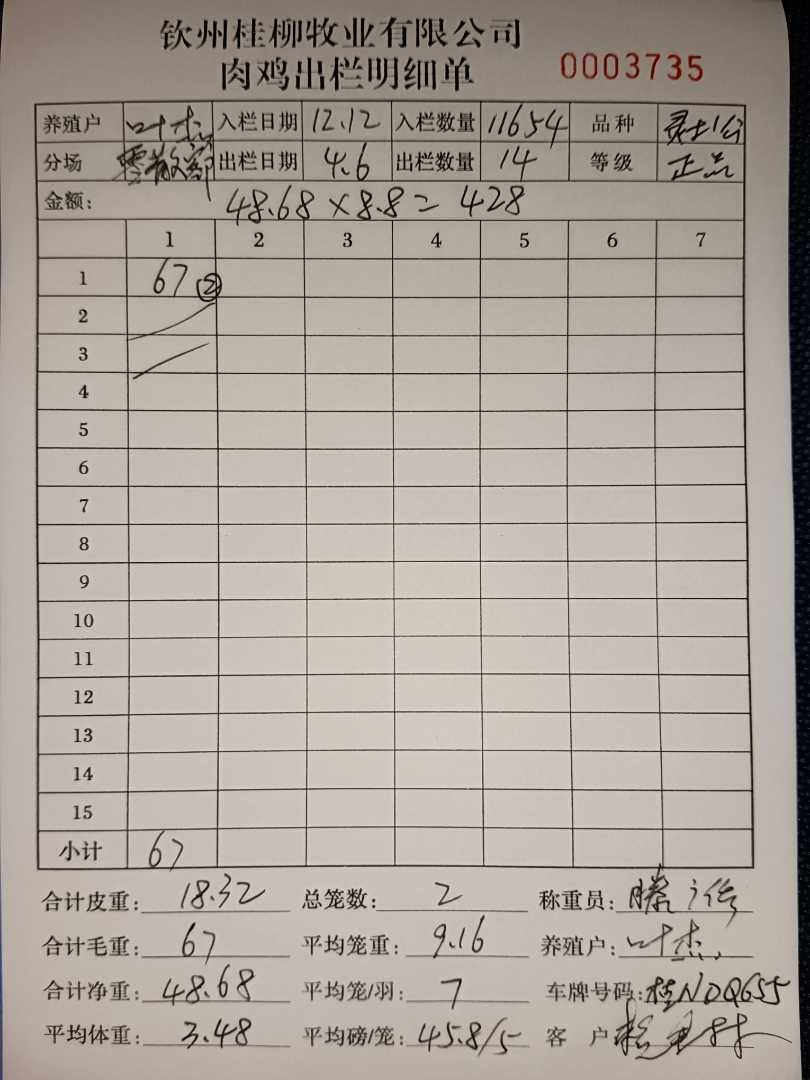 钦州桂柳牧业有限公司
肉鸡出栏明细单 0003735
养殖户 叶杰 入栏日期 12.12 入栏数量 11654 品种 灵土1公
分场 零散部 出栏日期 4.6 出栏数量 14 等级 正品
金额: 48.68×8.8=428
1 2 3 4 5 6 7
1 67 ②
2
3
4
5
6
7
8
9
10
11
12
13
14
15
小计 67
合计皮重: 18.32 总笼数: 2 称重员:
合计毛重: 67 平均笼重: 9.16 养殖户: 叶杰
合计净重: 48.68 平均笼/羽: 7 车牌号码: 桂NDQ655
平均体重: 3.48 平均磅/笼: 45.8/5 客户